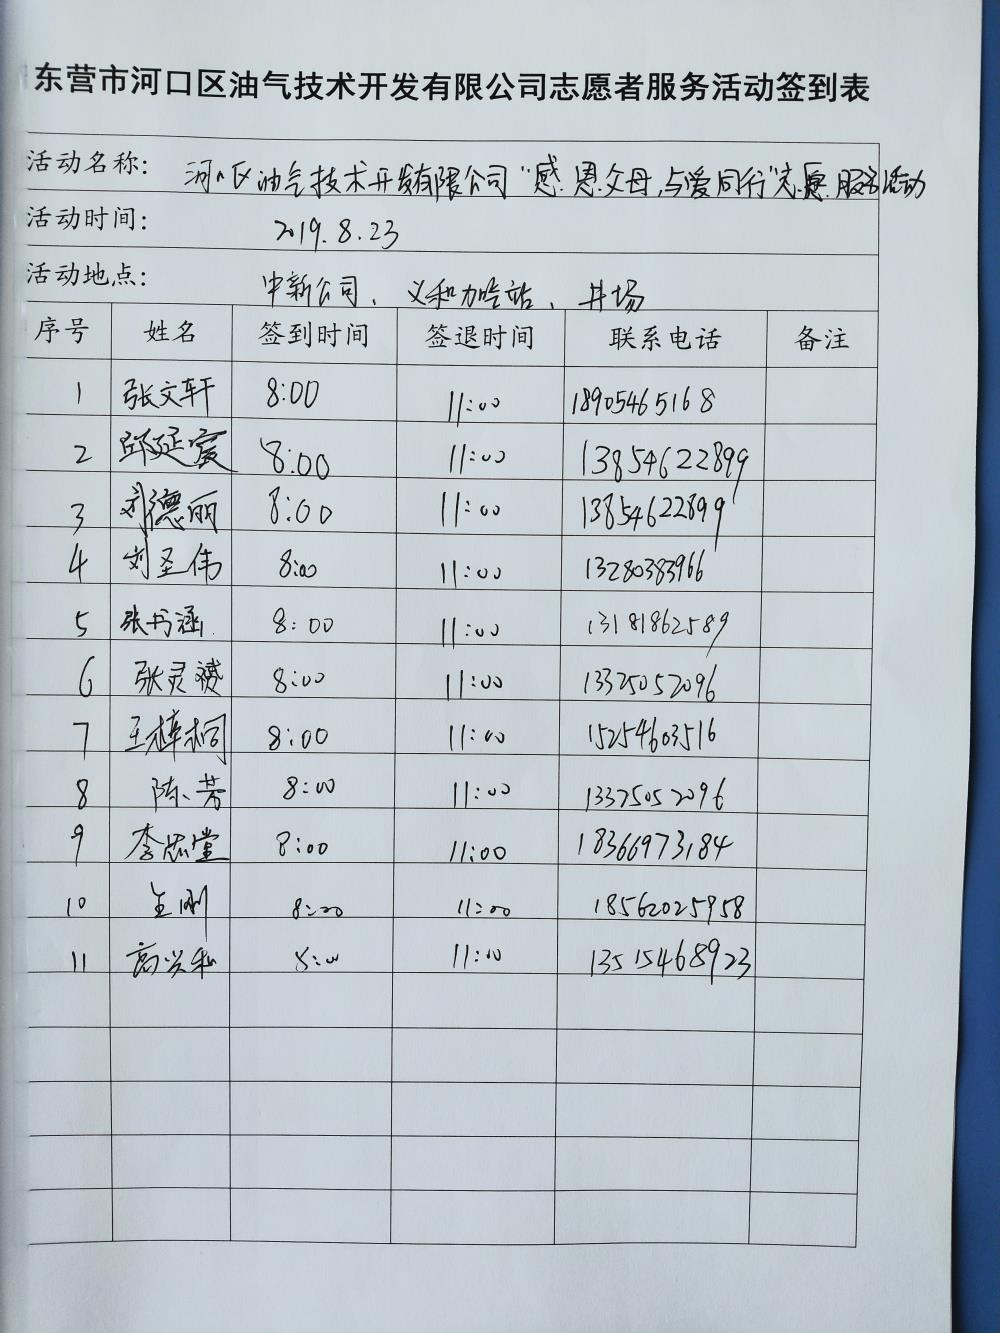 东营市河口区油气技术开发有限公司志愿者服务活动签到表
活动名称: 河口区油气技术开发有限公司“感恩父母,与爱同行”志愿服务活动
活动时间: 2019.8.23
活动地点: 中新公司、义和加哈站、井场
序号 姓名 签到时间 签退时间 联系电话 备注
1 张文轩 8:00 11:00 18905465168
2 邱延宸 8:00 11:00 13854622899
3 刘德丽 8:00 11:00 13854622899
4 刘圣伟 8:00 11:00 13280383966
5 张书涵 8:00 11:00 13181862589
6 张灵赟 8:00 11:00 13325052096
7 王梓桐 8:00 11:00 15254603516
8 陈芳 8:00 11:00 13325052096
9 李忠堂 8:00 11:00 18366973184
10 王刚 8:00 11:00 18562025958
11 高兴和 8:00 11:00 13515468923